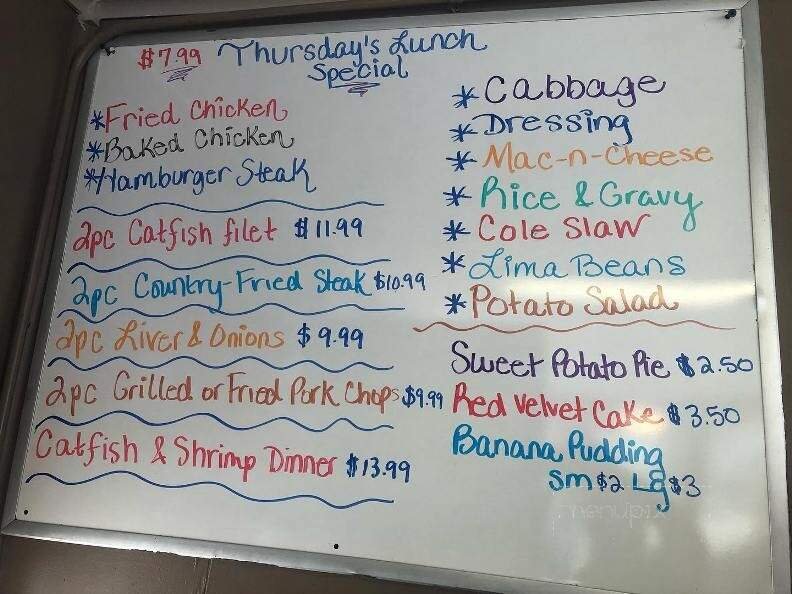 $7.99 Thursday's Lunch
Special
*Fried Chicken
*Baked Chicken
*Hamburger Steak
2pc Catfish filet $11.99
2pc Country-Fried Steak $10.99
2pc Liver & Onions $9.99
2pc Grilled or Fried Pork Chops $9.99
Catfish & Shrimp Dinner $13.99
* Cabbage
* Dressing
* Mac-n-Cheese
* Rice & Gravy
* Cole Slaw
* Lima Beans
* Potato Salad
Sweet Potato Pie $2.50
Red Velvet Cake $3.50
Banana Pudding
Sm $2 Lg $3
menupix